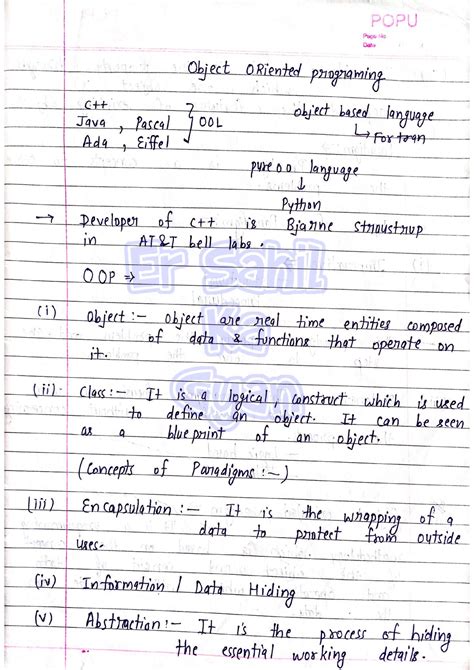 POPU
Page No.
Date
Object ORiented programing
C++
Java , Pascal } OOL
Ada , Eiffel
object based language
↳ Fortran
pure o o language
↓
Python
→ Developer of C++ is Bjarne Stroustrup
in AT&T bell labs .
OOP ⇒
(i) Object :- Object are real time entities composed
of data & functions that operate on
it.
(ii). Class :- It is a logical construct which is used
to define an object. It can be seen
as a blue print of an object.
(Concepts of Paradigms :-)
(iii) Encapsulation :- It is the wrapping of a
data to protect from outside
uses.
(iv) Information / Data Hiding
(v) Abstraction :- It is the process of hiding
the essential working details.
Er Sahil
Ka
Gyan